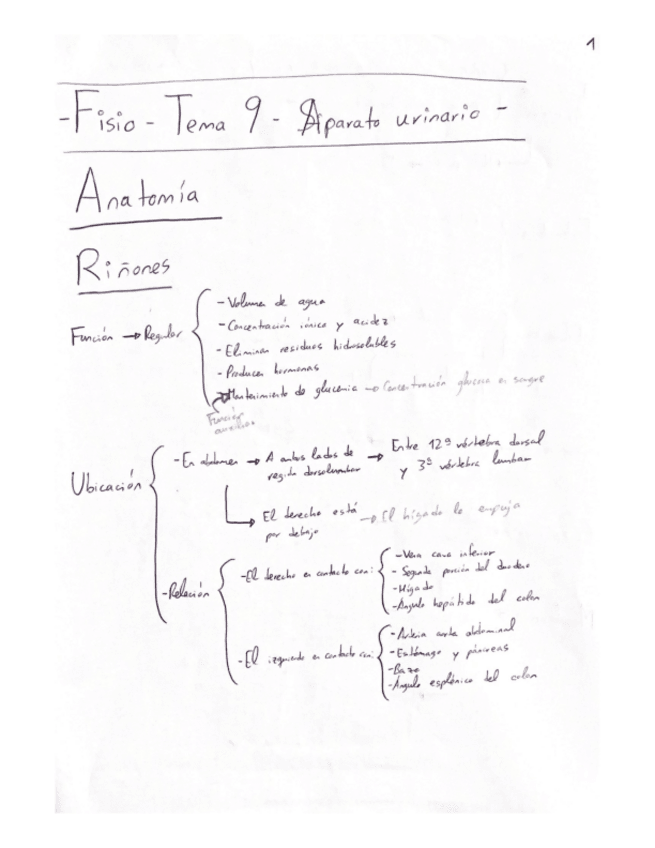 1
- Fisio - Tema 9 - Aparato urinario -
Anatomía
Riñones
Función → Regular
- Volumen de agua
- Concentración iónica y acidez
- Eliminan residuos hidrosolubles
- Producen hormonas
Mantenimiento de glucemia → Concentración glucosa en sangre
Función
auxiliar
Ubicación
- En abdomen → A ambos lados de
región dorsolumbar
→ Entre 12ª vértebra dorsal
y 3ª vértebra lumbar
→ El derecho está
por debajo
→ El hígado lo empuja
- Relación
- El derecho en contacto con:
- Vena cava inferior
- Segunda porción del duodeno
- Hígado
- Ángulo hepático del colon
- El izquierdo en contacto con:
- Arteria aorta abdominal
- Estómago y páncreas
- Bazo
- Ángulo esplénico del colon